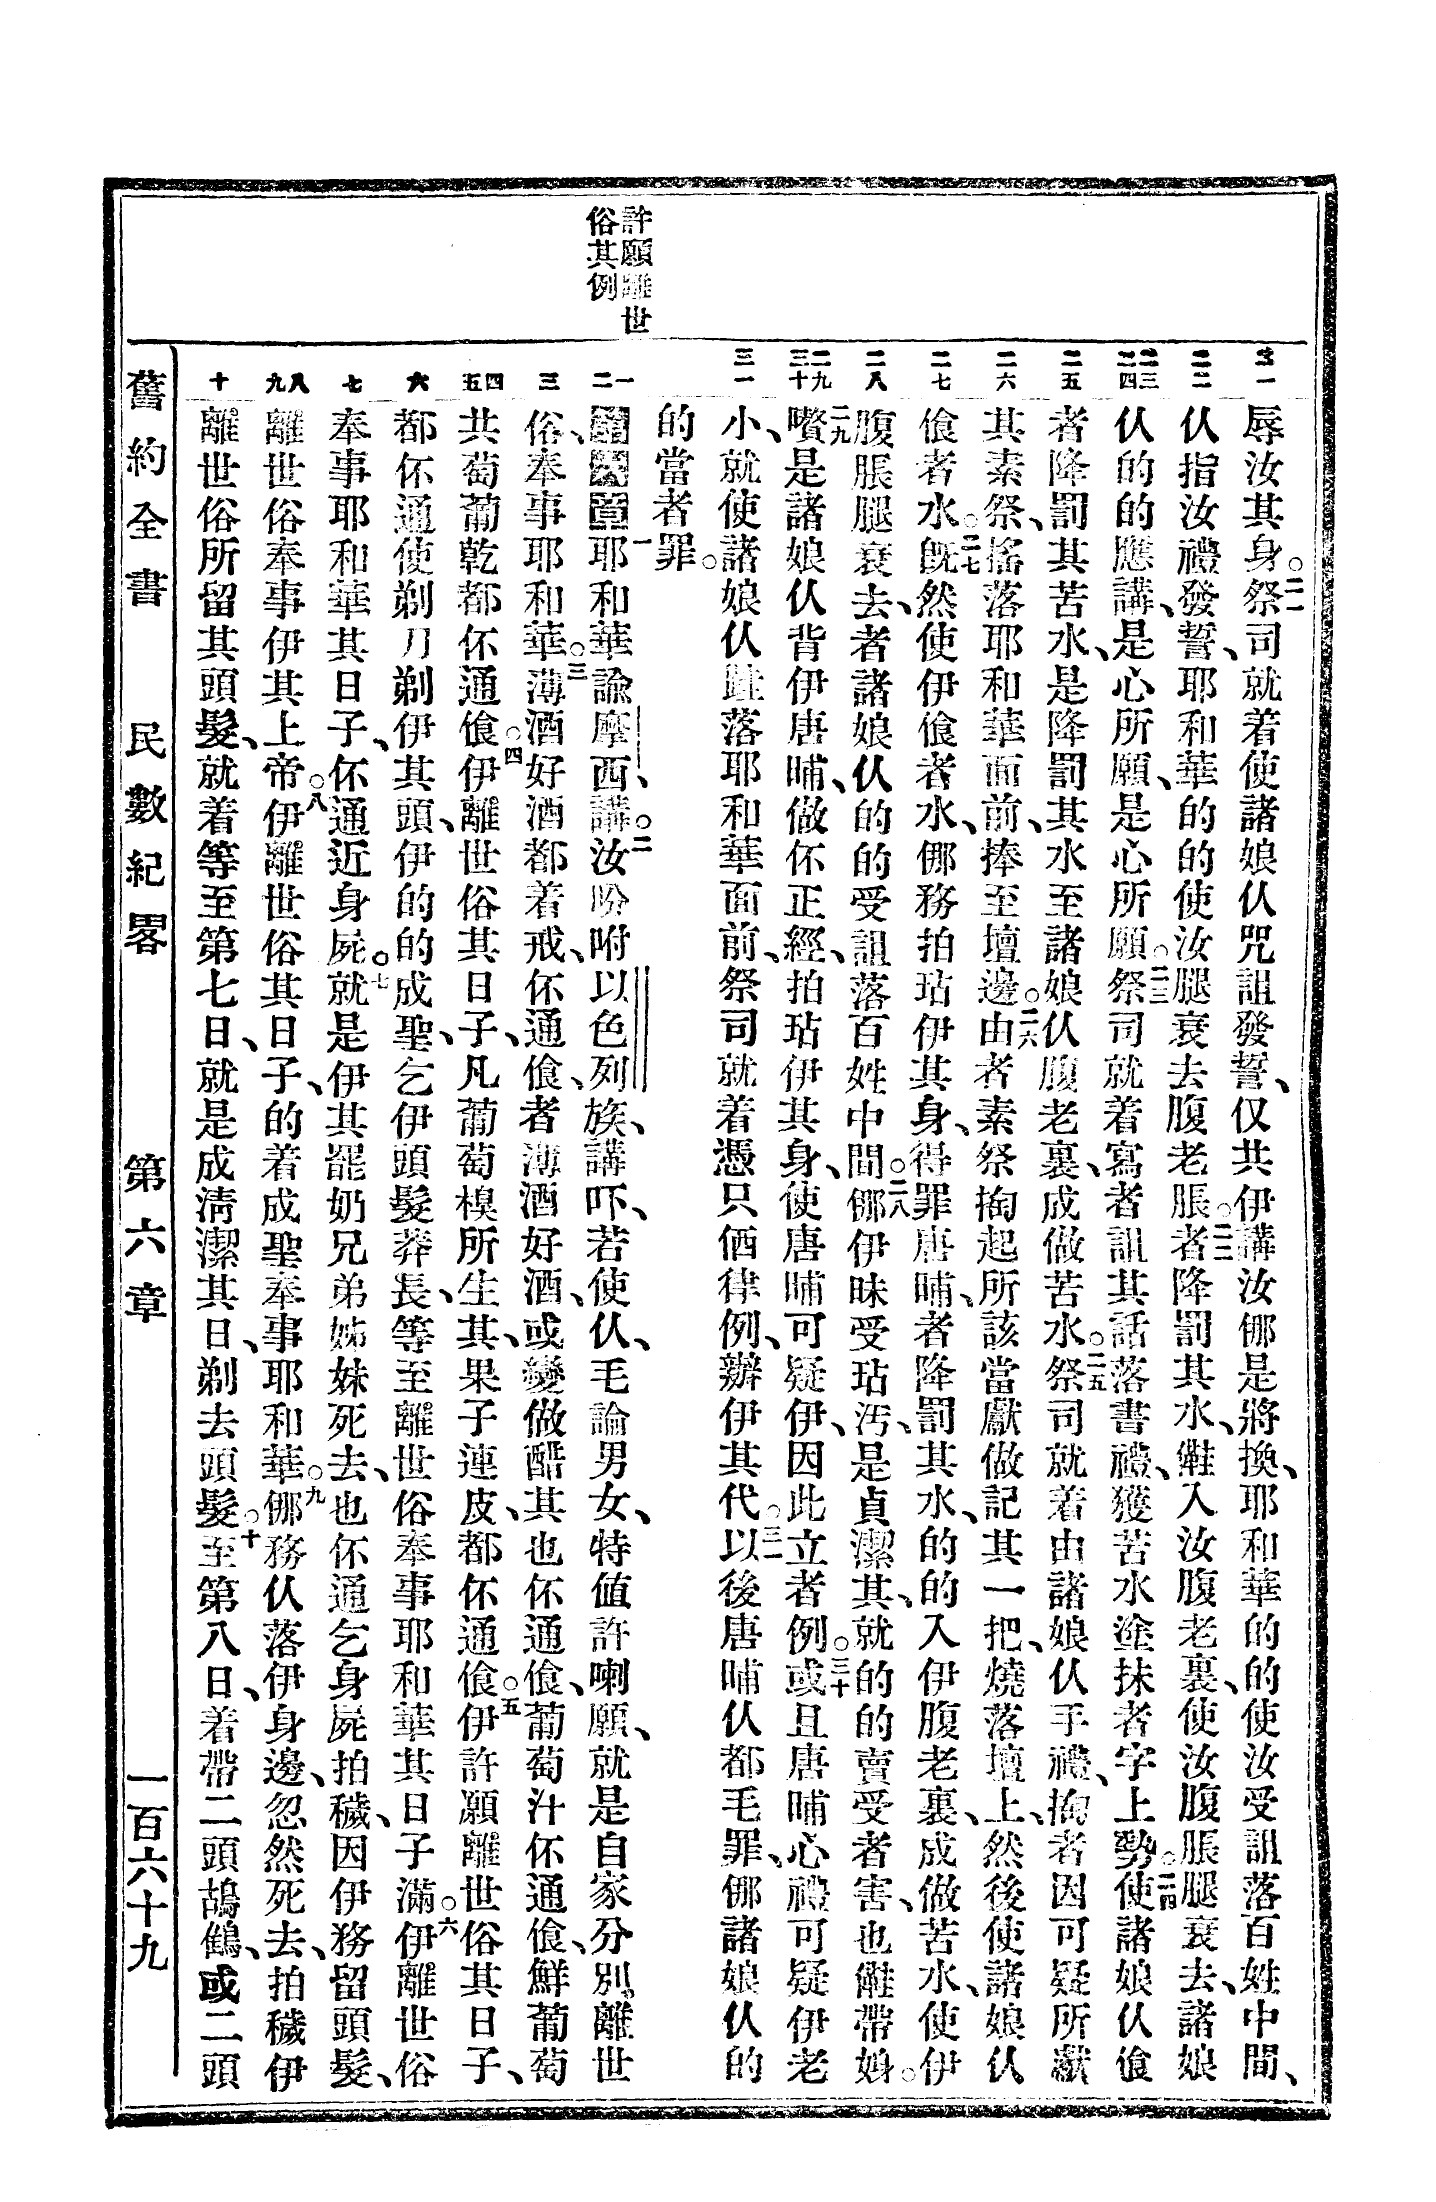 許願離世
俗其例
二一
二二
二三
二四
二五
二六
二七
二八
二九
三十
三一
一
二
三
四
五
六
七
八
九
十
辱汝其身○二一祭司就着使諸娘仈咒詛發誓、仅共伊講汝倻是將換、耶和華的的使汝受詛落百姓中間、
仈指汝禮發誓、耶和華的的使汝腿衰去腹老脹○二二者降罰其水、𣍐入汝腹老裏、使汝腹脹腿衰去、諸娘
仈的的應講、是心所願、是心所願○二三祭司就着寫者詛其話落書禮、獲苦水塗抹者字上勢○二四使諸娘仈飡
者降罰其苦水、是降罰其水至諸娘仈腹老裏、成做苦水○二五祭司就着由諸娘仈手禮、掏者因可疑所獻
其素祭、搖落耶和華面前、捧至壇邊○二六由者素祭掏起所該當獻做記其一把、燒落壇上、然後使諸娘仈
飡者水○二七旣然使伊飡者水、倻務拍玷伊其身、得罪唐晡、者降罰其水、的的入伊腹老裏、成做苦水、使伊
腹脹腿衰去、者諸娘仈的的受詛落百姓中間○二八倻伊昧受玷汚、是貞潔其、就的的賣受者害、也𣍐帶娠。
二九嚽是諸娘仈背伊唐晡、做伓正經、拍玷伊其身、使唐晡可疑伊、因此立者例○三十或且唐晡心禮可疑伊老
小、就使諸娘仈跬落耶和華面前、祭司就着憑只個律例、辦伊其代○三一以後唐晡仈都毛罪、倻諸娘仈的
的當者罪。
第六章一耶和華諭摩西、講○二汝吩咐以色列族、講吓、若使仈、毛論男女、特値許喇願、就是自家分別離世
俗、奉事耶和華○三薄酒好酒都着戒、伓通飡、者薄酒好酒、或變做醋其也伓通飡、葡萄汁伓通飡、鮮葡萄
共葡萄乾都伓通飡○四伊離世俗其日子、凡葡萄樣所生其、果子連皮、都伓通飡○五伊許願離世俗其日子、
都伓通使剃刀剃伊其頭、伊的的成聖、乞伊頭髮莽長、等至離世俗奉事耶和華其日子滿○六伊離世俗
奉事耶和華其日子、伓通近身屍○七就是伊其罷奶兄弟姊妹死去、也伓通乞身屍拍穢、因伊務留頭髮、
離世俗奉事伊其上帝○八伊離世俗其日子、的着成聖奉事耶和華○九倻務仈落伊身邊、忽然死去、拍穢伊
離世俗所留其頭髮、就着等至第七日、就是成淸潔其日、剃去頭髮○十至第八日、着帶二頭鴣鶴、或二頭
舊約全書 民數紀畧 第六章 一百六十九